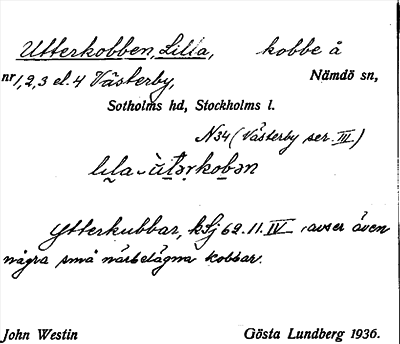 Utterkobben, Lilla, kobbe å
nr 1, 2, 3 el. 4 Västerby, Nämdö sn,
Sotholms hd, Stockholms l.
N34 (Västerby ser. III)
Ytterkubbar, kSj 62.11.IV avser även
några små närbelägna kobbar.
John Westin Gösta Lundberg 1936.